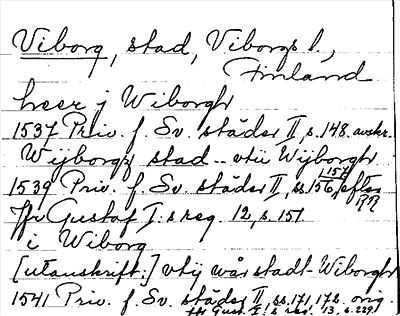 Viborg, stad, Viborgs l.,
Finland
heer j Wiborgh
1537 Priv. f. Sv. städer II, s. 148. avskr.
Wijborgz stad -- vtii Wijborgh
1539 Priv. f. Sv. städer II, ss. 156, 157, efter
RR
Jfr Gustaf I:s reg. 12, s. 151
i Wiborg
[utanskrift:] vtij wår stadt Wiborgh
1541 Priv. f. Sv. städer II, ss. 171, 172. orig.
Jfr Gust. I:s reg. 13, s. 229.